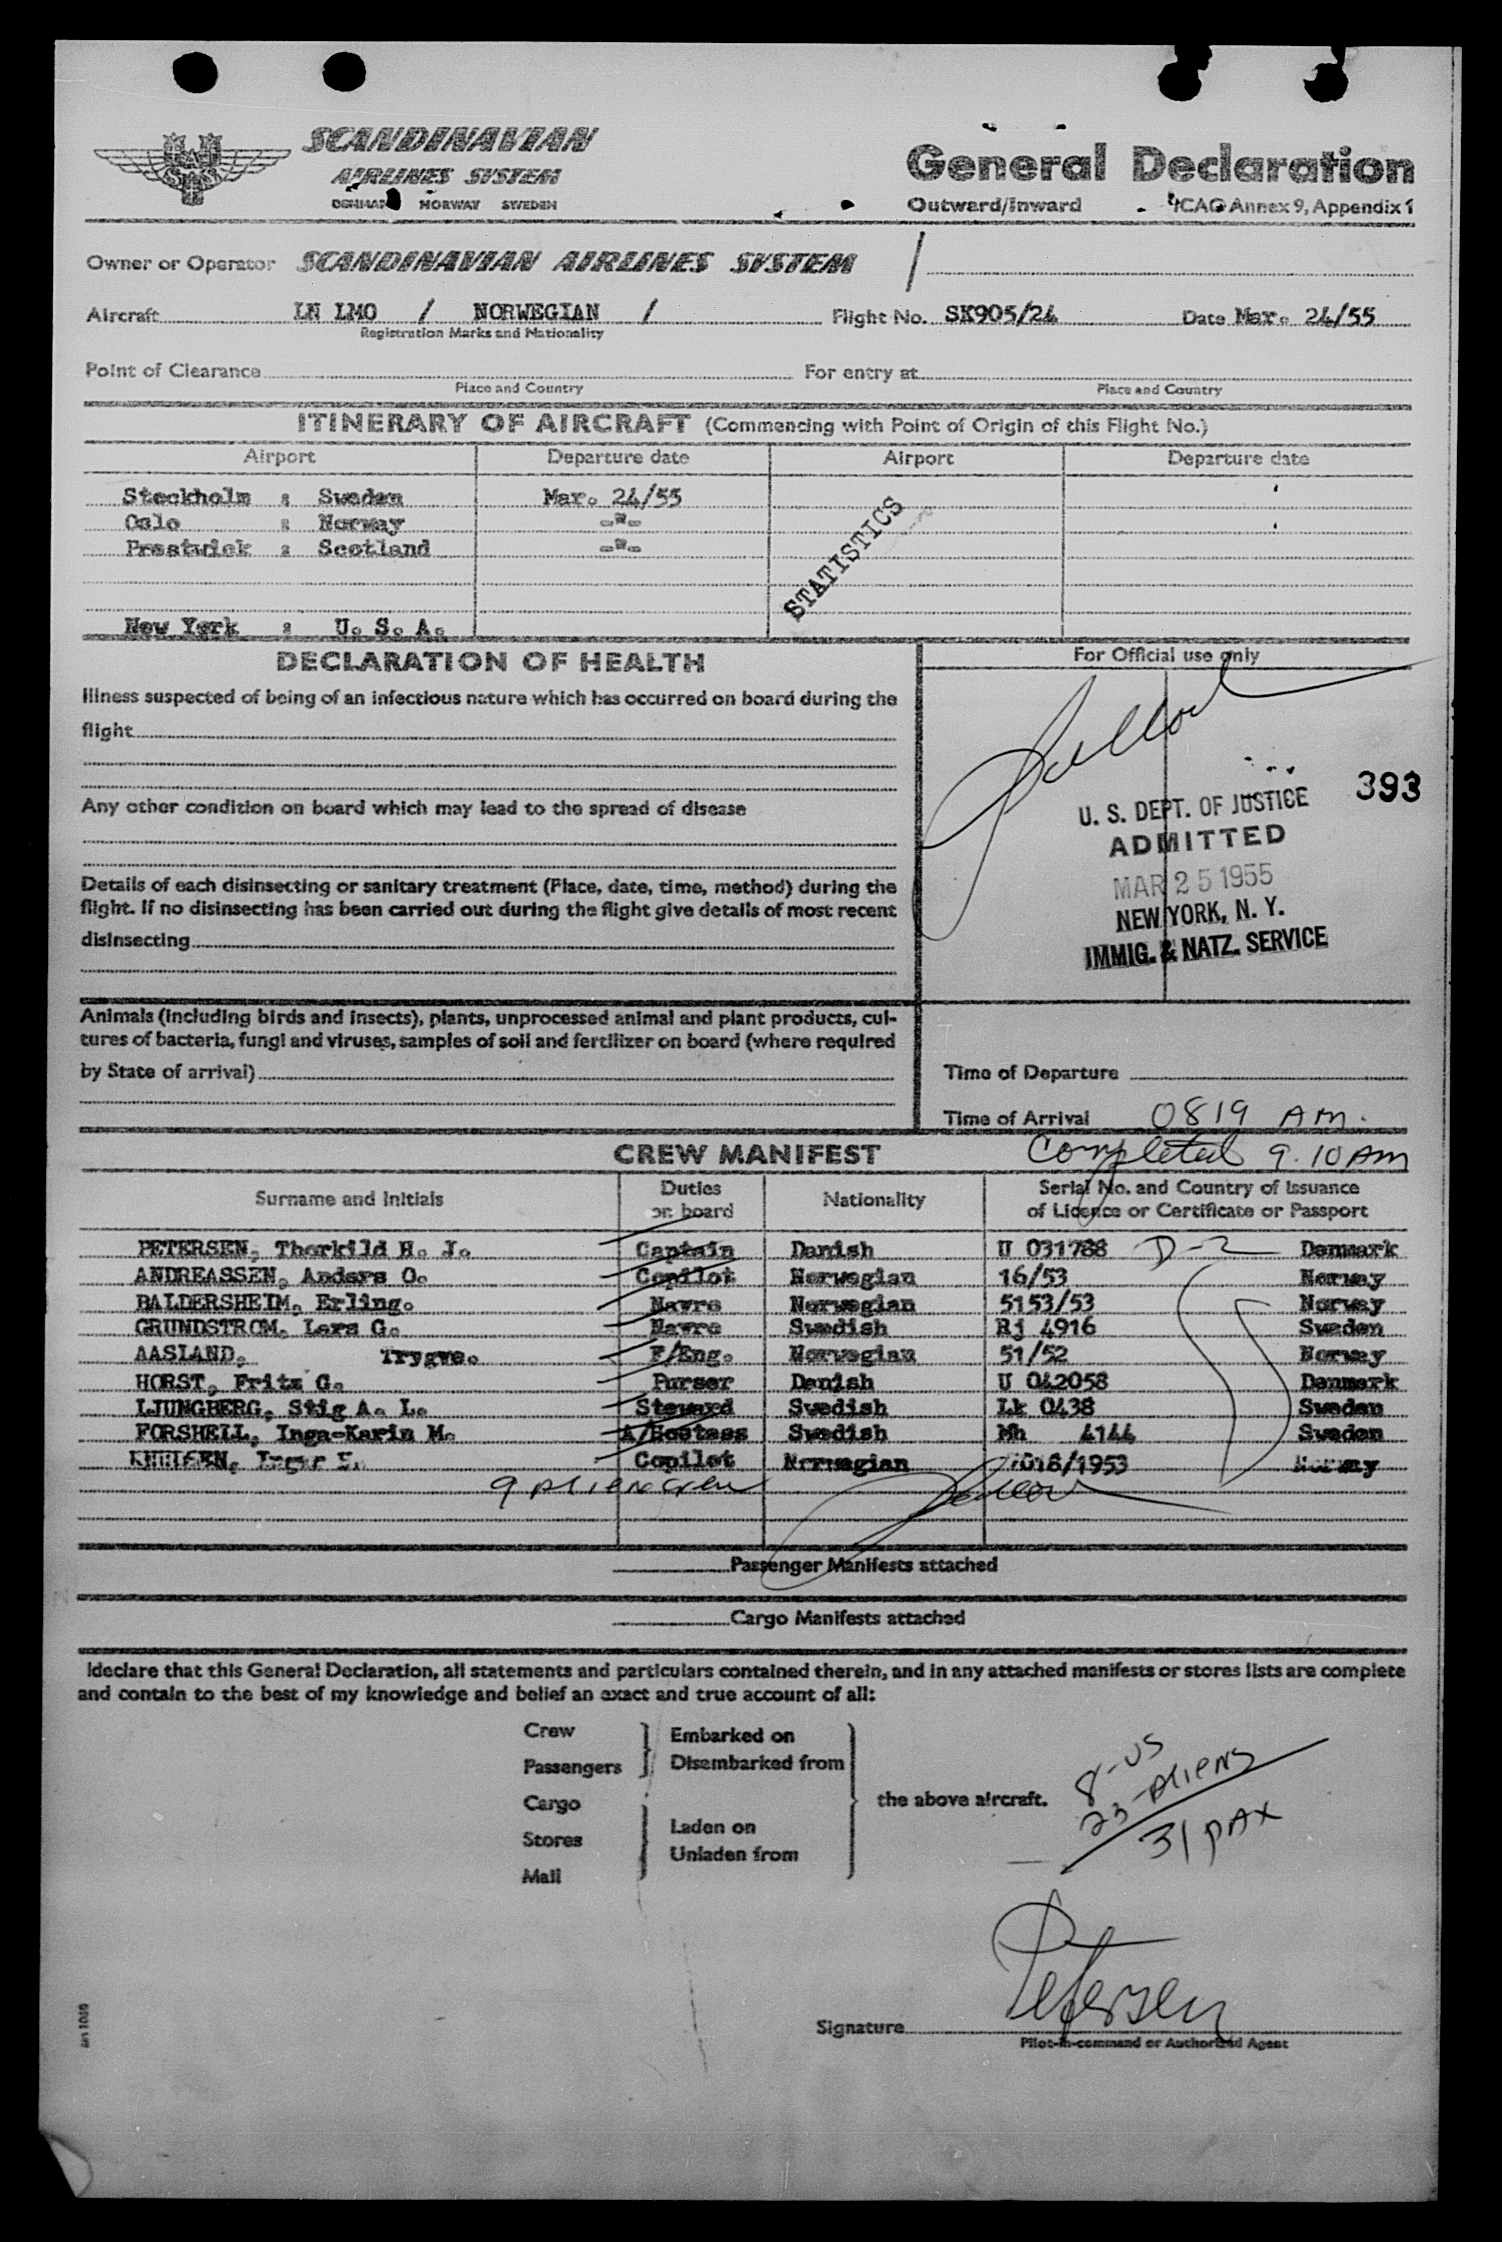 SCANDINAVIAN
AIRLINES SYSTEM
DENMARK NORWAY SWEDEN
General Declaration
Outward/Inward ICAO Annex 9, Appendix 1
Owner or Operator SCANDINAVIAN AIRLINES SYSTEM /
Aircraft LN LMO / NORWEGIAN / Flight No. SK905/24 Date Mar. 24/55
Registration Marks and Nationality
Point of Clearance For entry at
Place and Country Place and Country
ITINERARY OF AIRCRAFT (Commencing with Point of Origin of this Flight No.)
Airport Departure date Airport Departure date
Stockholm : Sweden Mar. 24/55
Oslo : Norway -"-
Prestwick : Scotland -"-
STATISTICS
New York : U. S. A.
DECLARATION OF HEALTH
For Official use only
Illness suspected of being of an infectious nature which has occurred on board during the
flight
Any other condition on board which may lead to the spread of disease
Details of each disinsecting or sanitary treatment (Place, date, time, method) during the
flight. If no disinsecting has been carried out during the flight give details of most recent
disinsecting
393
U. S. DEPT. OF JUSTICE
ADMITTED
MAR 25 1955
NEW YORK, N. Y.
IMMIG. & NATZ. SERVICE
Animals (including birds and insects), plants, unprocessed animal and plant products, cul-
tures of bacteria, fungi and viruses, samples of soil and fertilizer on board (where required
by State of arrival)
Time of Departure
Time of Arrival 0819 AM.
Completed 9.10 AM
CREW MANIFEST
Surname and Initials Duties on board Nationality Serial No. and Country of Issuance of Licence or Certificate or Passport
PETERSEN, Thorkild H. J. Captain Danish U 031788 D-2 Denmark
ANDREASSEN, Anders O. Copilot Norwegian 16/53 Norway
BALDERSHEIM, Erling. Navro Norwegian 5153/53 Norway
GRUNDSTROM, Lars G. Navro Swedish Rj 4916 Sweden
AASLAND, Trygve. F/Eng. Norwegian 51/52 Norway
HORST, Fritz G. Purser Danish U 042058 Denmark
LJUNGBERG, Stig A. L. Steward Swedish Lk 0438 Sweden
FORSHELL, Inga-Karin M. A/Hostess Swedish Mh 4144 Sweden
Copilot Norwegian Norway
9 alien crew
Passenger Manifests attached
Cargo Manifests attached
I declare that this General Declaration, all statements and particulars contained therein, and in any attached manifests or stores lists are complete
and contain to the best of my knowledge and belief an exact and true account of all:
Crew Embarked on
Passengers Disembarked from
Cargo the above aircraft.
Stores Laden on
Mail Unladen from
8-US
23-Aliens
31 PAX
Petersen
Signature
Pilot-in-command or Authorized Agent